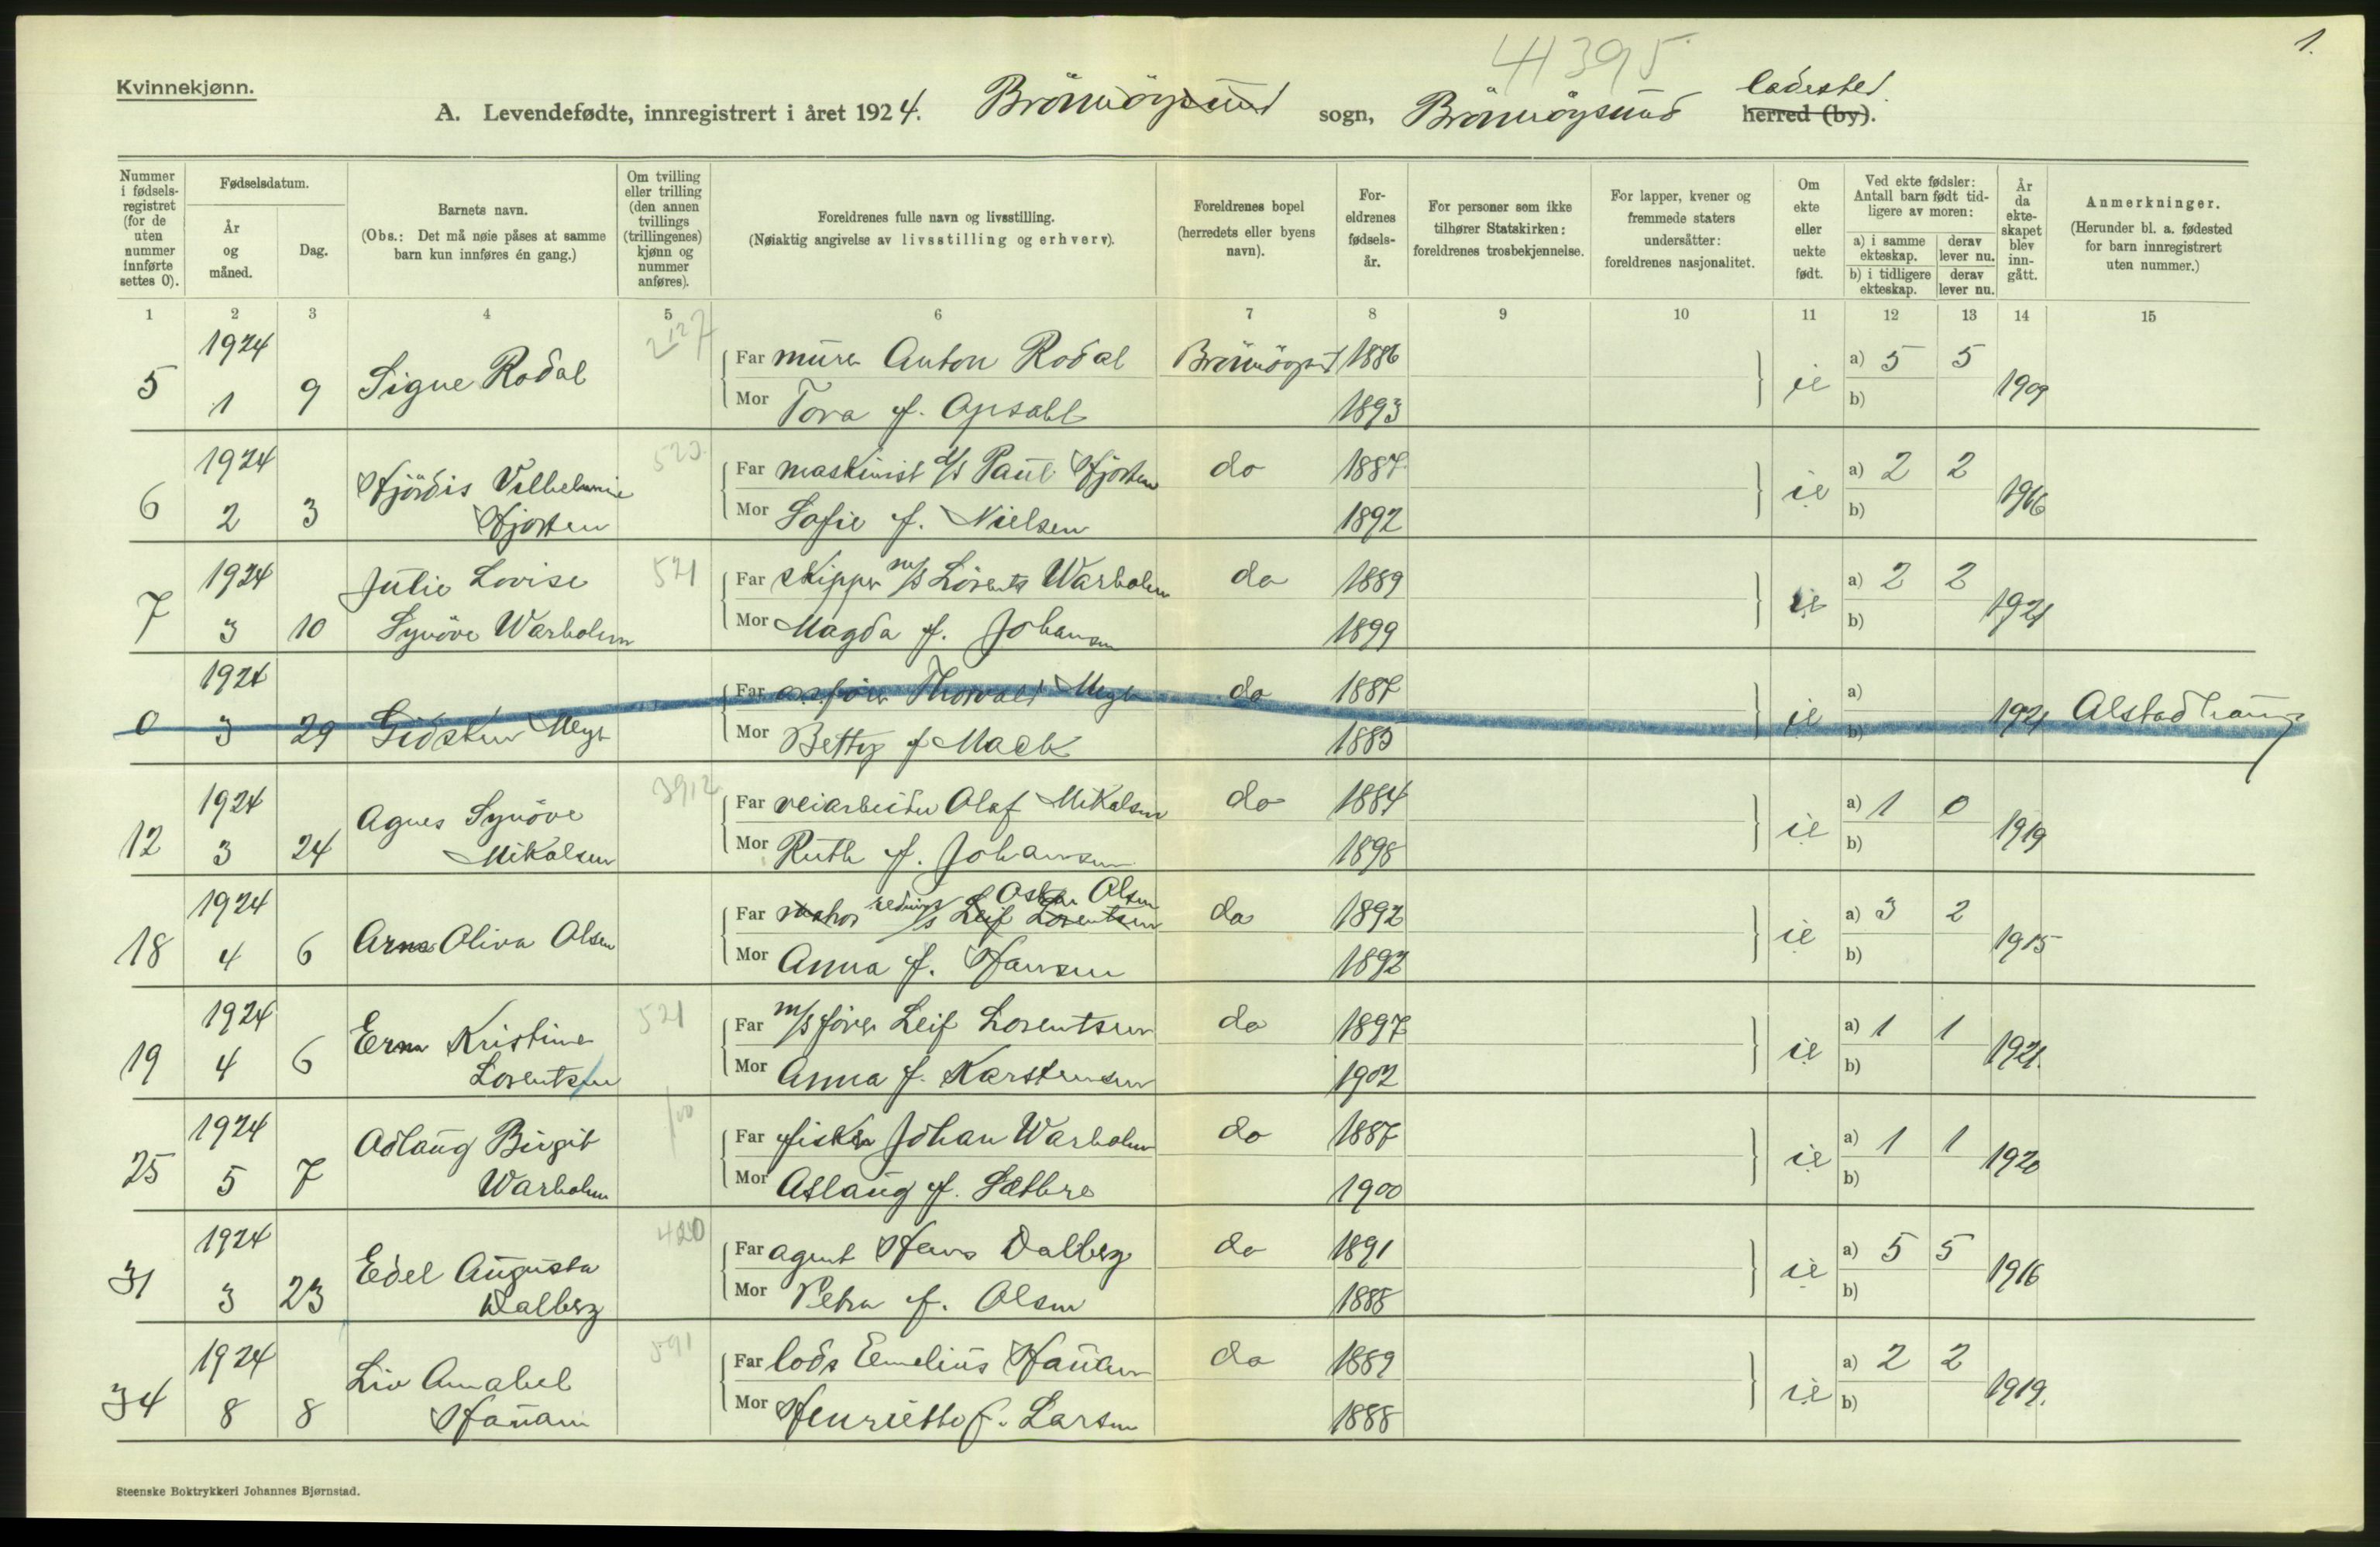 1.
44395
Kvinnekjønn.
A. Levendefødte, innregistrert i året 1924. Brönnöysund sogn, Brönnöysund ladested herred (by).
Nummer i fødsels-registret (for de uten nummer innførte settes 0).
Fødselsdatum.
År og måned.
Dag.
Barnets navn.
(Obs.: Det må nøie påses at samme barn kun innføres én gang.)
Om tvilling eller trilling (den annen tvillings (trillingenes) kjønn og nummer anføres).
Foreldrenes fulle navn og livsstilling.
(Nøiaktig angivelse av livsstilling og erhverv).
Foreldrenes bopel (herredets eller byens navn).
For-eldrenes fødsels-år.
For personer som ikke tilhører Statskirken: foreldrenes trosbekjennelse.
For lapper, kvener og fremmede staters undersåtter: foreldrenes nasjonalitet.
Om ekte eller uekte født.
Ved ekte fødsler: Antall barn født tid-ligere av moren:
a) i samme ekteskap.
derav lever nu.
b) i tidligere ekteskap.
derav lever nu.
År da ekte-skapet blev inn-gått.
Anmerkninger.
(Herunder bl. a. fødested for barn innregistrert uten nummer.)
1 2 3 4 5 6 7 8 9 10 11 12 13 14 15
5 1924 1 9 Signe Rodal
Far murer Anton Rodal Brönnöysund 1886 ie a) 5 5 1909
Mor Tora f. Opsahl 1893 b)
6 1924 2 3 Hjördis Vilhelmine Hjorten
Far maskinist d/s Paul Hjorten do 1887 ie a) 2 2 1916
Mor Sofie f. Nielsen 1892 b)
7 1924 3 10 Julie Lovise Synöve Warholm 521
Far skipper m/s Lorents Warholm do 1889 ie a) 2 2 1921
Mor Magda f. Johansen 1899 b)
0 1924 3 29 Gidsken Meyer
Far Thorvald Meyer do 1887 ie a) 1921 Alstadhaug
Mor Betty f Mack 1885 b)
12 1924 3 24 Agnes Synöve Mikalsen 3912
Far veiarbeider Olaf Mikalsen do 1884 ie a) 1 0 1919
Mor Ruth f. Johansen 1898 b)
18 1924 4 6 Arna Oliva Olsen
Far rednings s Leif Lorentsen Oskar Olsen do 1892 ie a) 3 2 1915
Mor Anna f. Hansen 1892 b)
19 1924 4 6 Erna Kristine Lorentsen 521
Far m/s förer Leif Lorentsen do 1897 ie a) 1 1 1921.
Mor Anna f. Karstensen 1902 b)
25 1924 5 7 Adlaug Birgit Warholm
Far fisker Johan Warholm do 1887 ie a) 1 1 1920
Mor Aslaug f. Sæthre 1900 b)
31 1924 3 23 Edel Augusta Dalberg 420
Far agent Hans Dalberg do 1891 ie a) 5 5 1916
Mor Petra f. Olsen 1888 b)
34 1924 8 8 Liv Annabel Hauan 591
Far lods Emelius Hauan do 1889 ie a) 2 2 1919.
Mor Henriette f. Larsen 1888 b)
Steenske Boktrykkeri Johannes Bjørnstad.